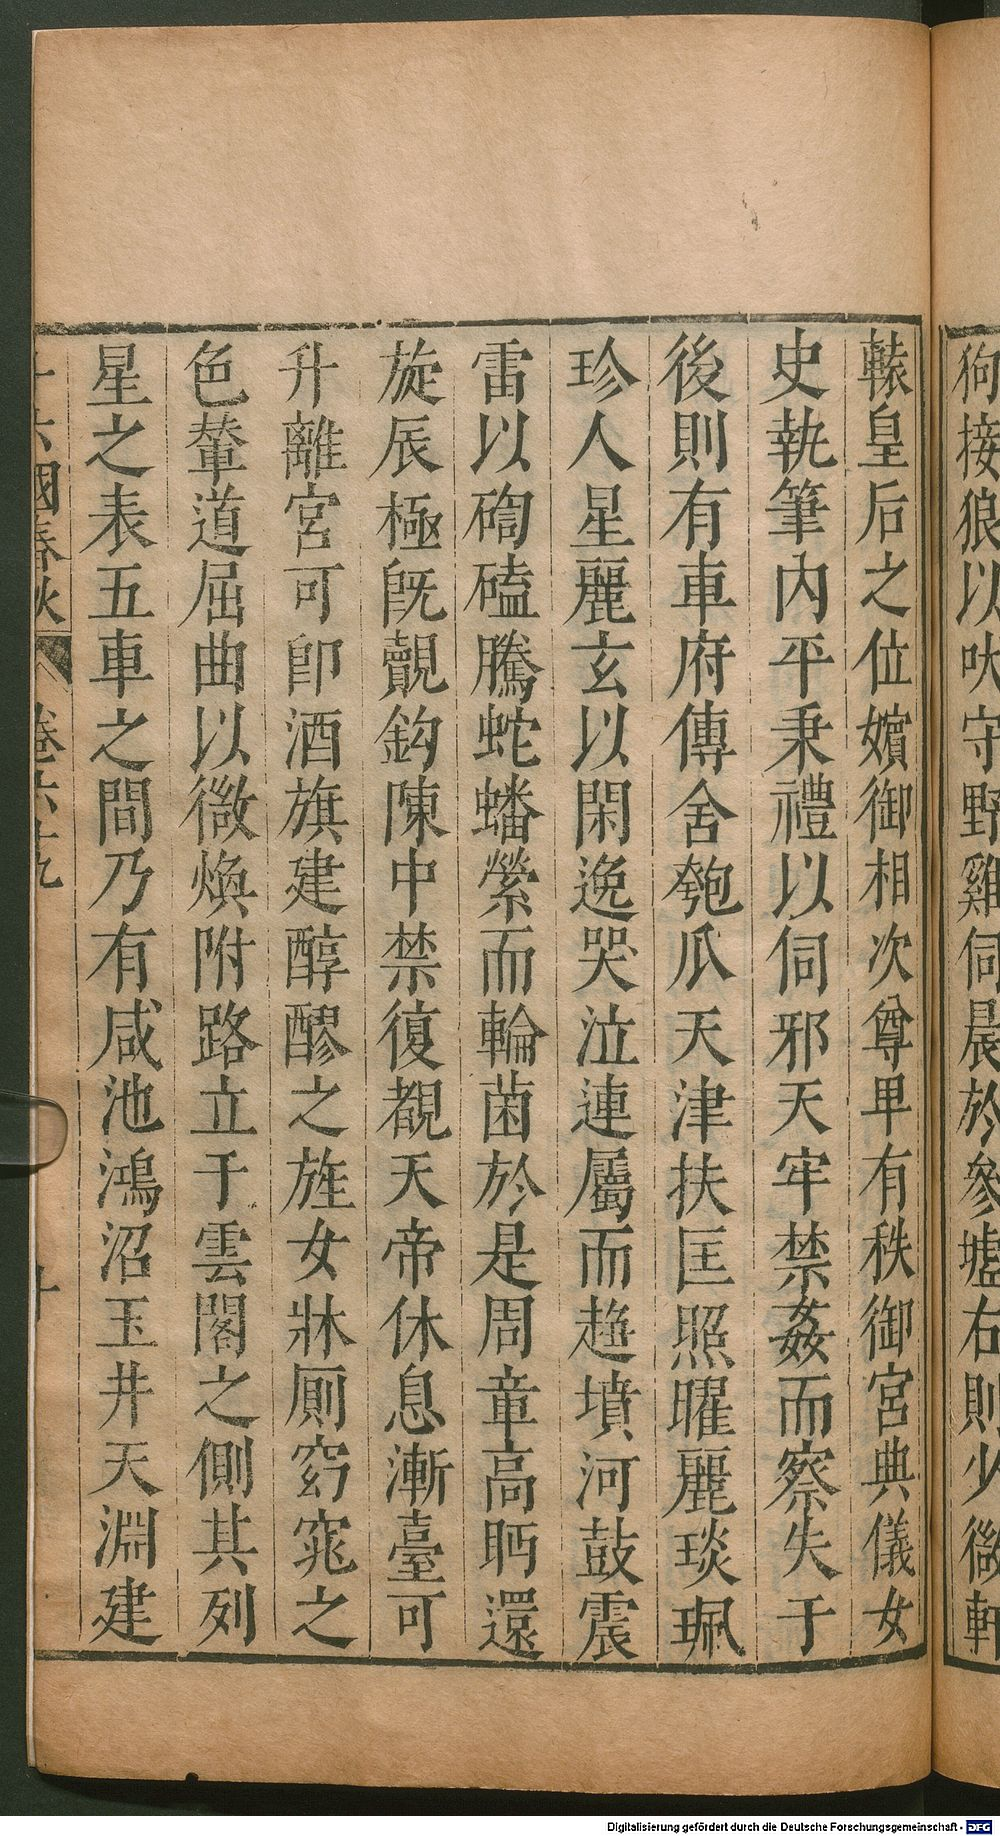 狗接狼以吠守野雞伺晨於參墟右則少微軒
轅皇后之位嬪御相次尊卑有秩御宮典儀女
史執筆內平秉禮以伺邪天牢禁姦而察失于
後則有車府傳舍匏瓜天津扶匡照曜麗琰珮
珍人星麗玄以閑逸哭泣連屬而趍墳河鼓震
雷以磤磕騰蛇蟠縈而輪菌於是周章高眄還
旋辰極旣覿鈎陳中禁復覩天帝休息漸臺可
升離宮可卽酒旗建醇醪之旌女牀厠窈窕之
色輦道屈曲以微煥附路立于雲閣之側其列
星之表五車之間乃有咸池鴻沼玉井天淵建
十六國春秋 卷六十九 十
Digitalisierung gefördert durch die Deutsche Forschungsgemeinschaft - DFG